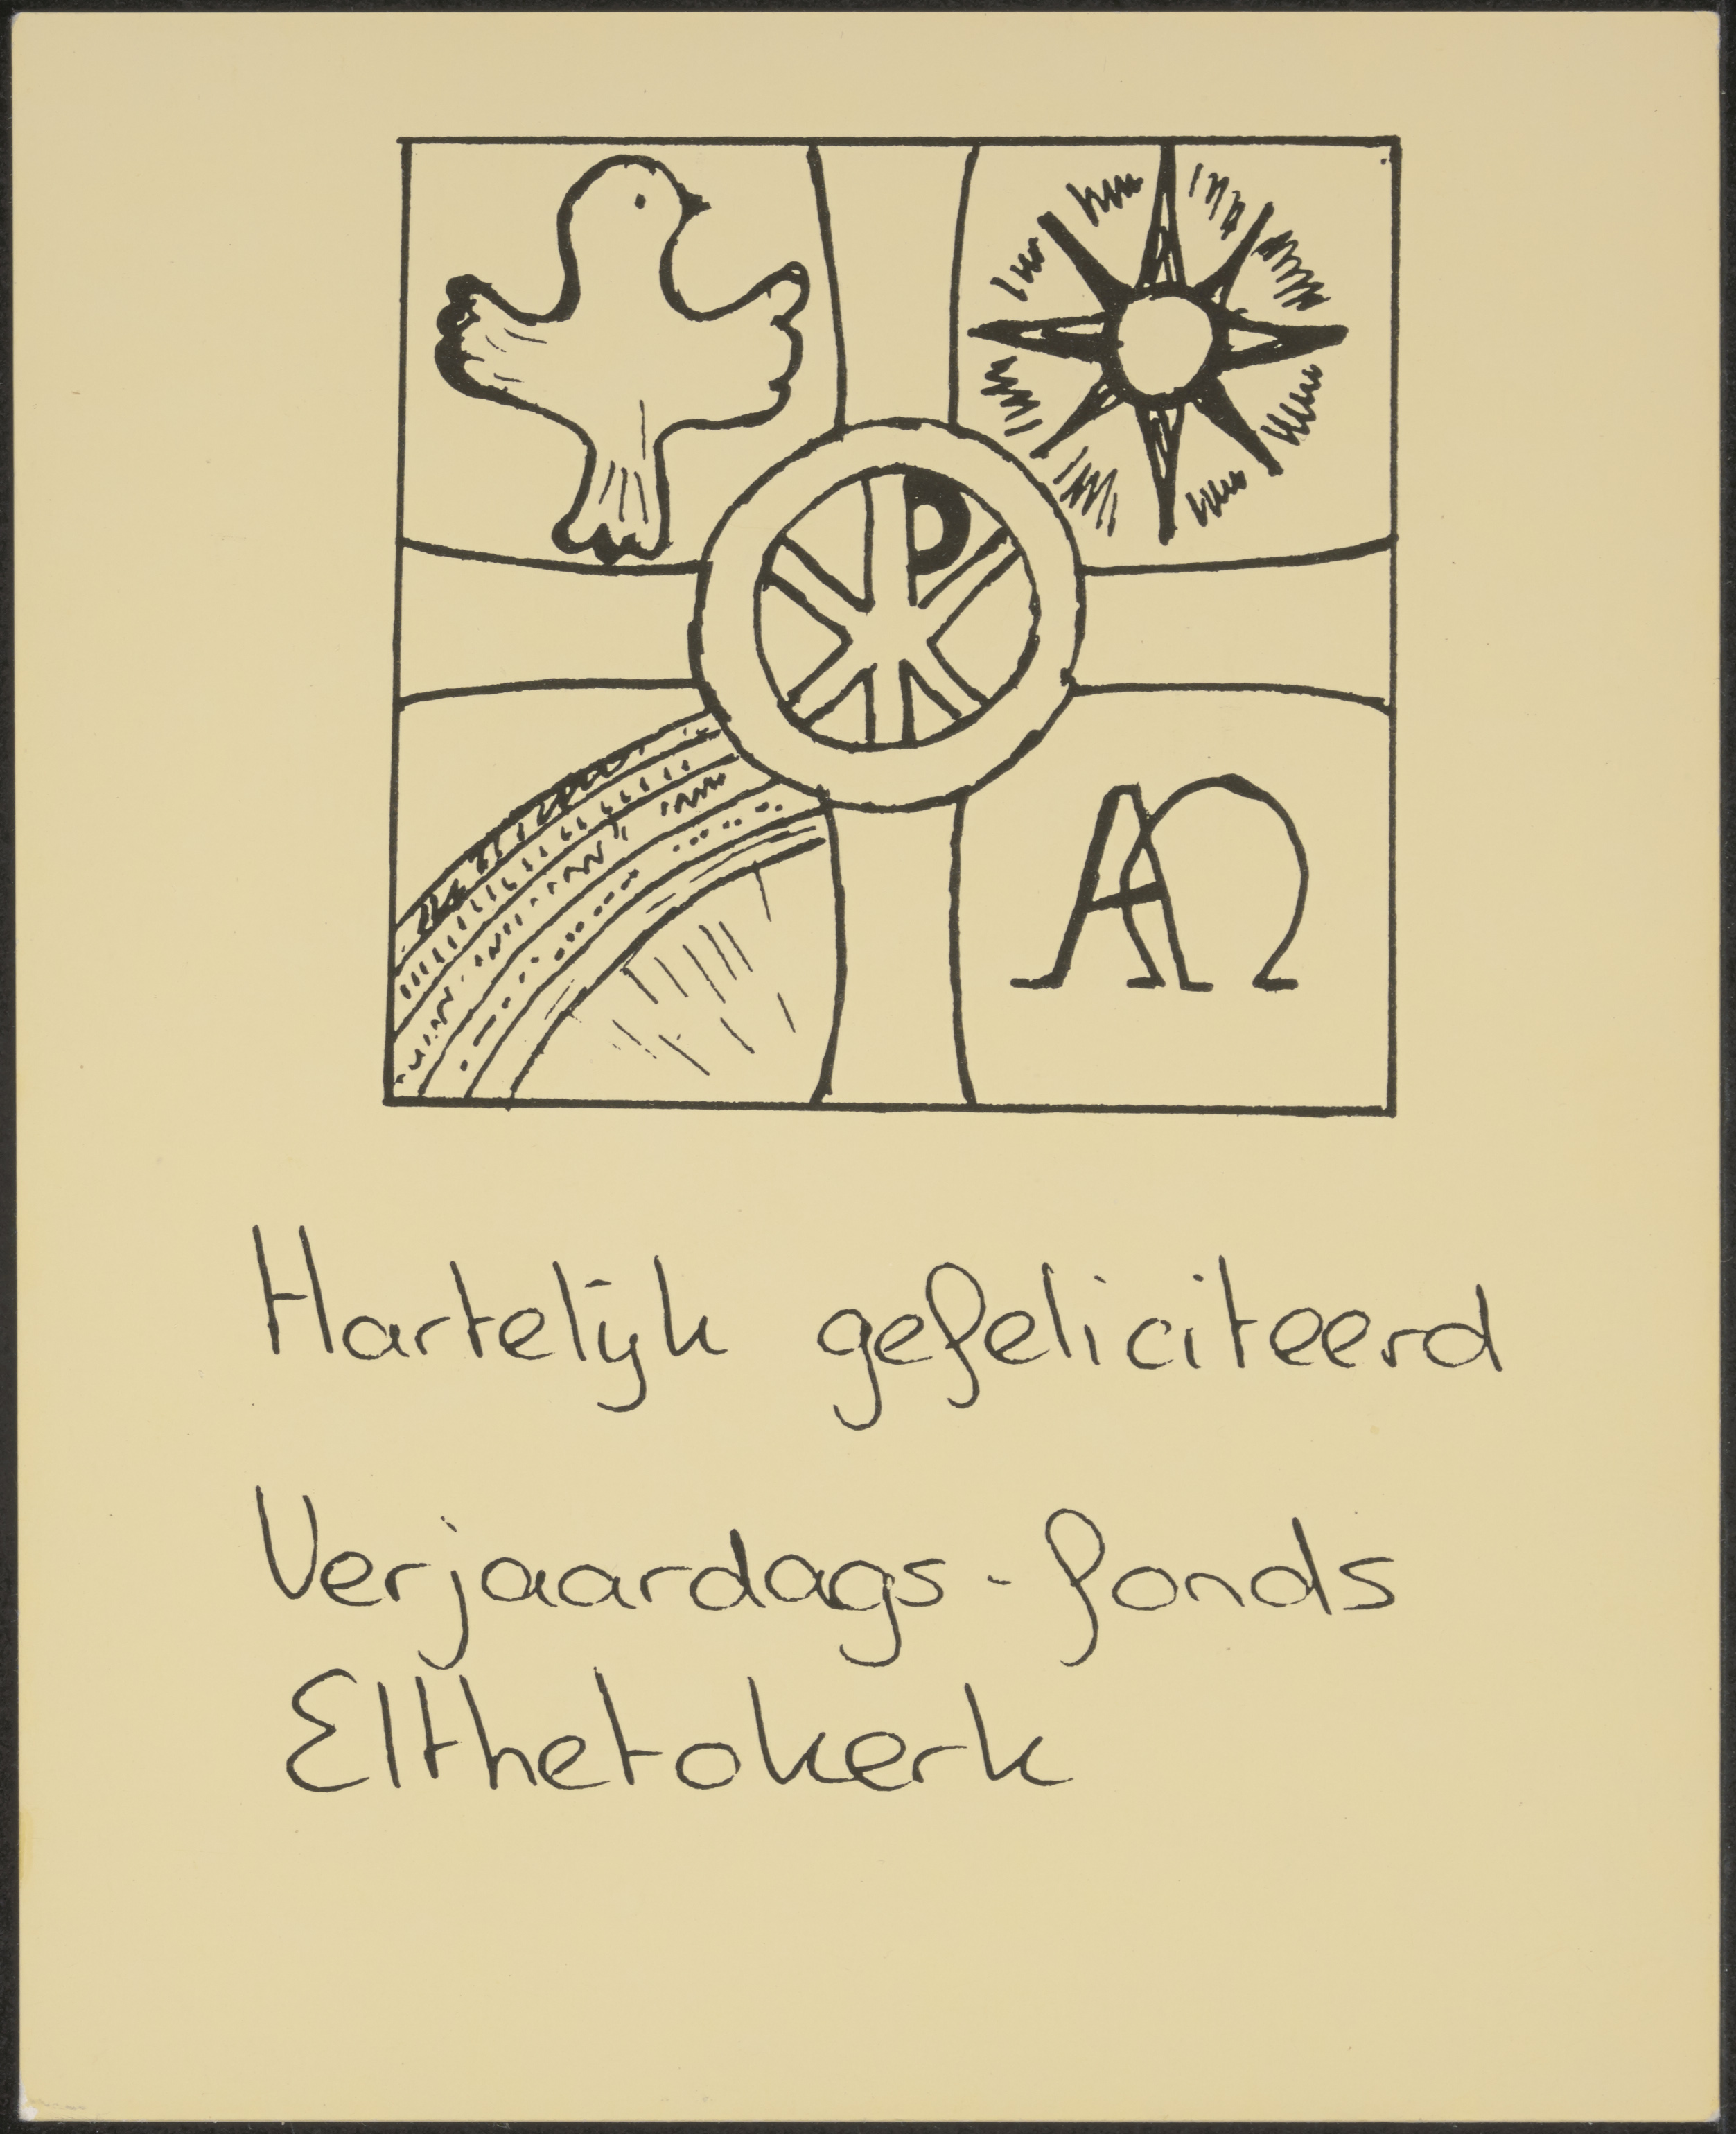 ΑΩ
Hartelijk gefeliciteerd
Verjaardags-fonds
Elthetokerk